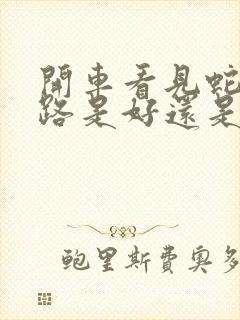 開車看見蛇
路是好還是
鮑里斯費奧多